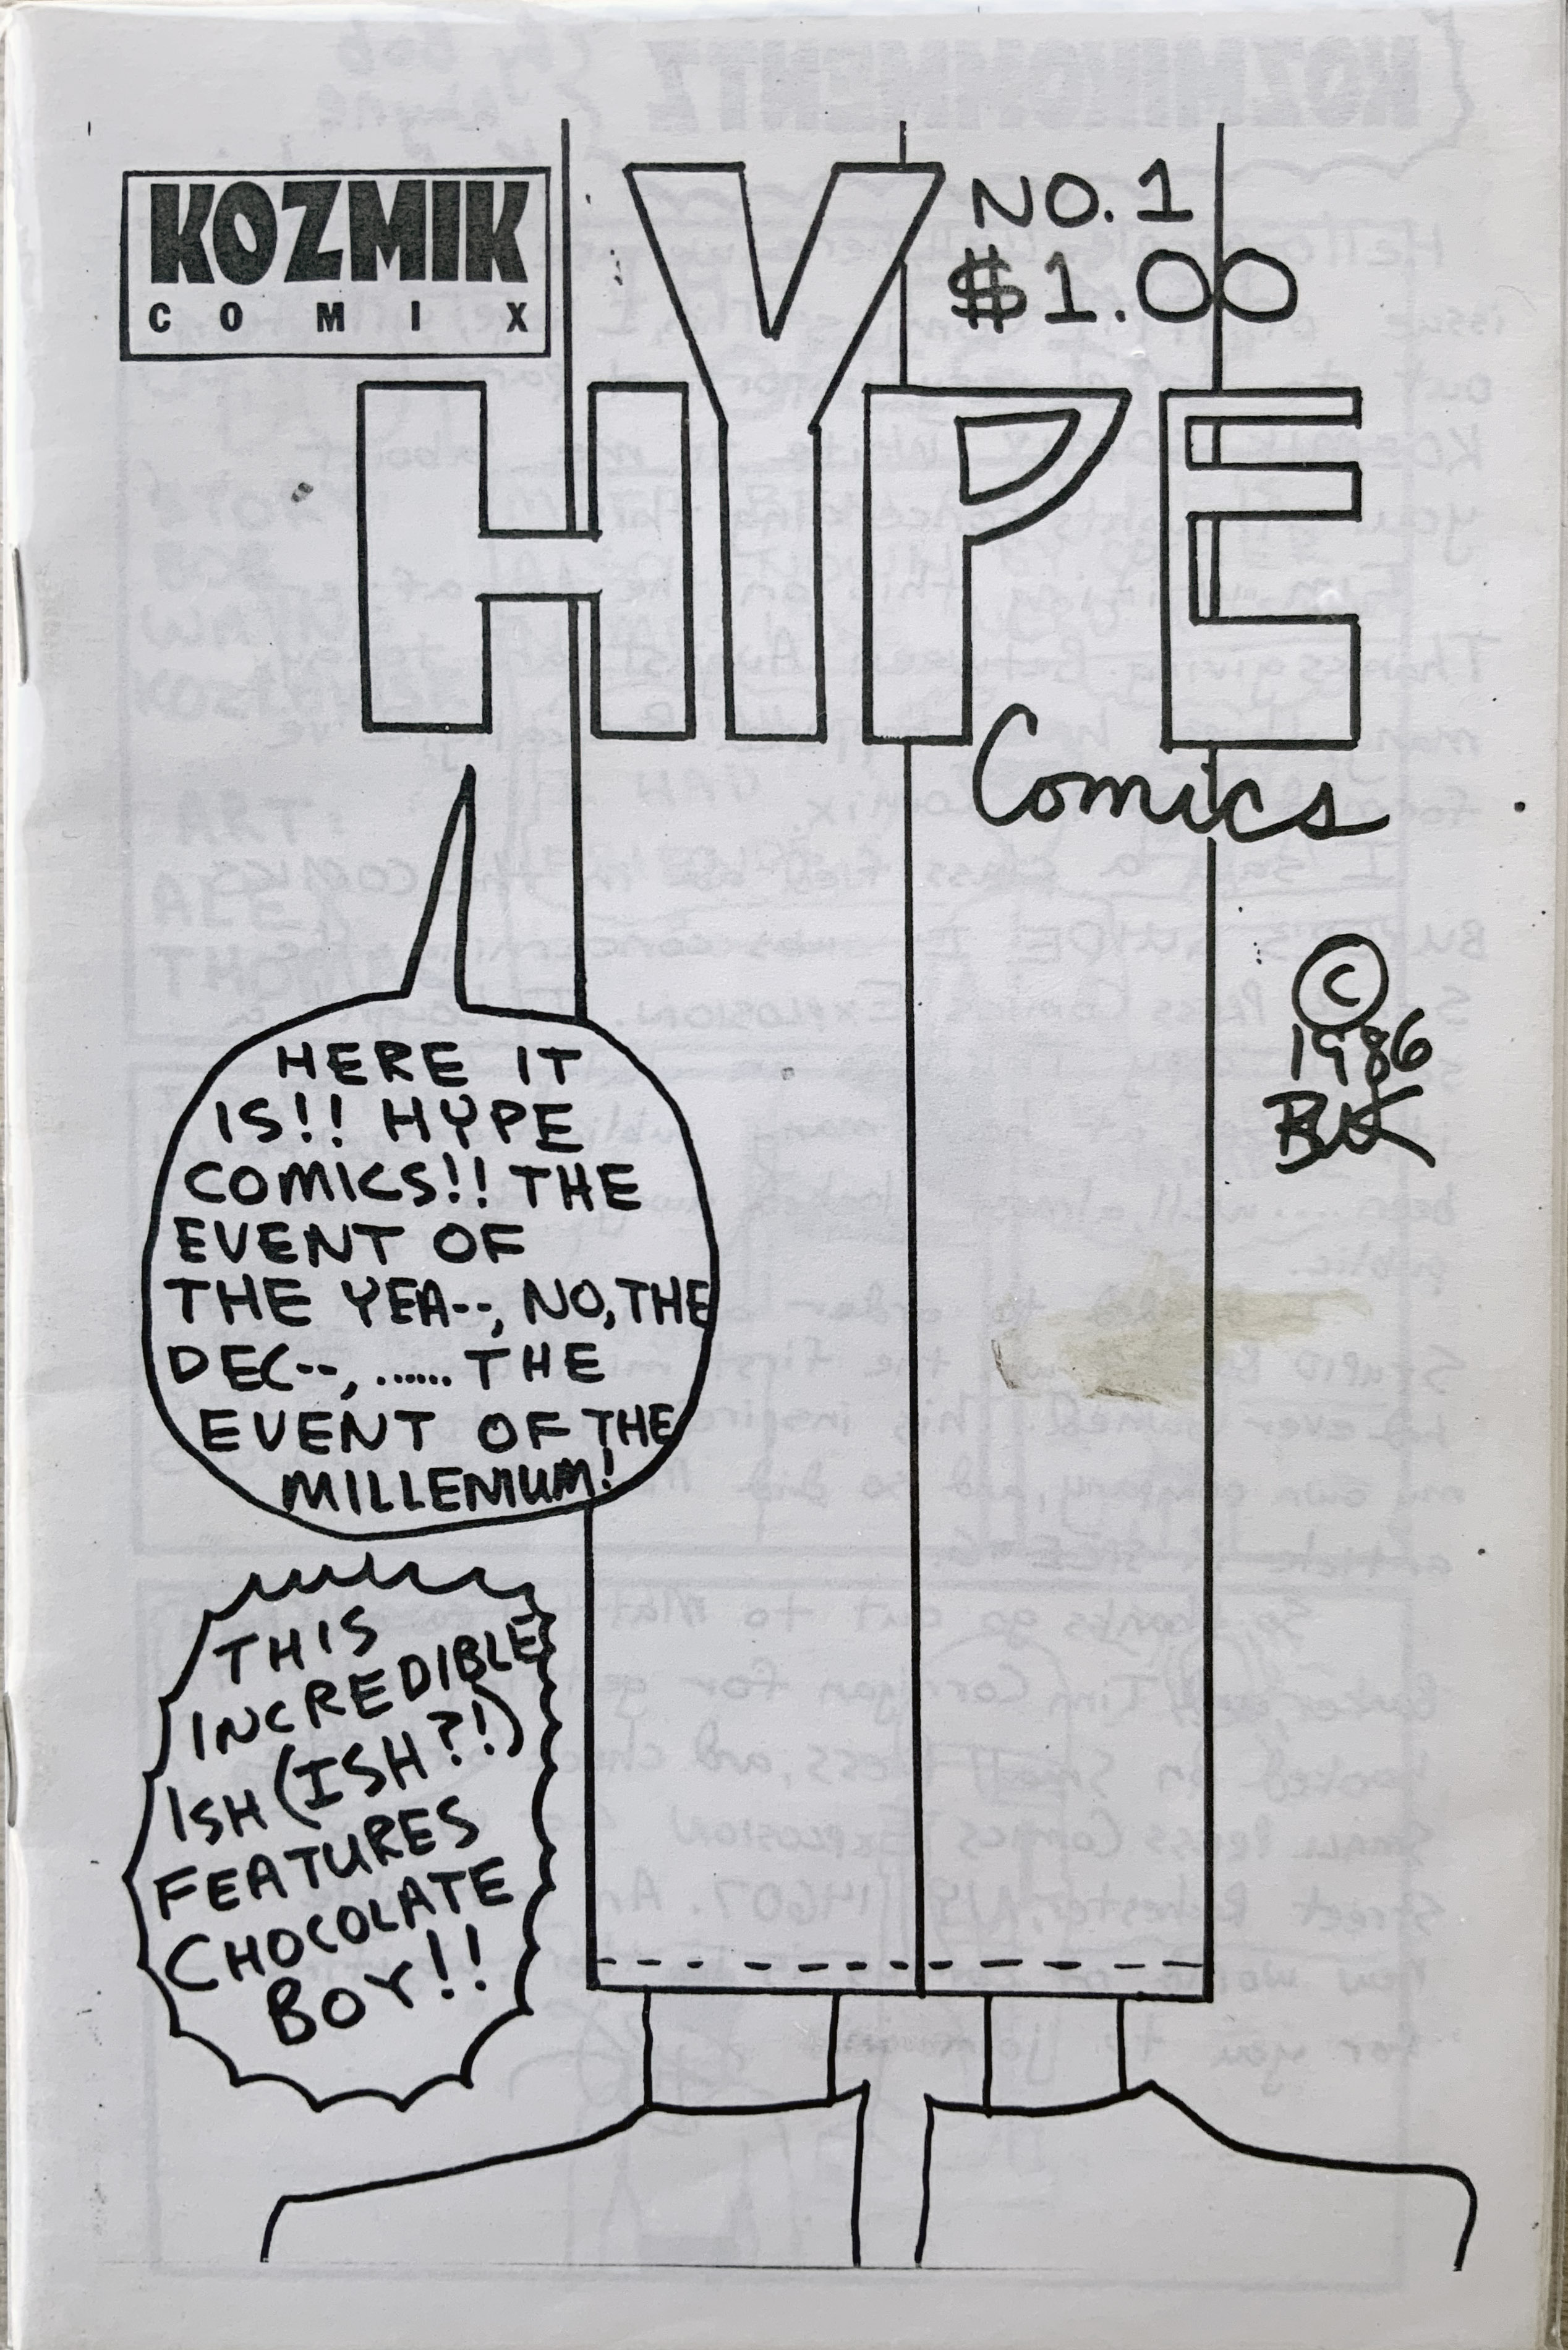 KOZMIK
COMIX
HYPE
Comics
NO. 1
$1.00
©
1986
HERE IT
IS!! HYPE
COMICS!! THE
EVENT OF
THE YEA--, NO, THE
DEC--, ...... THE
EVENT OF THE
MILLENIUM!
THIS
INCREDIBLE
ISH (ISH?!)
FEATURES
CHOCOLATE
BOY!!